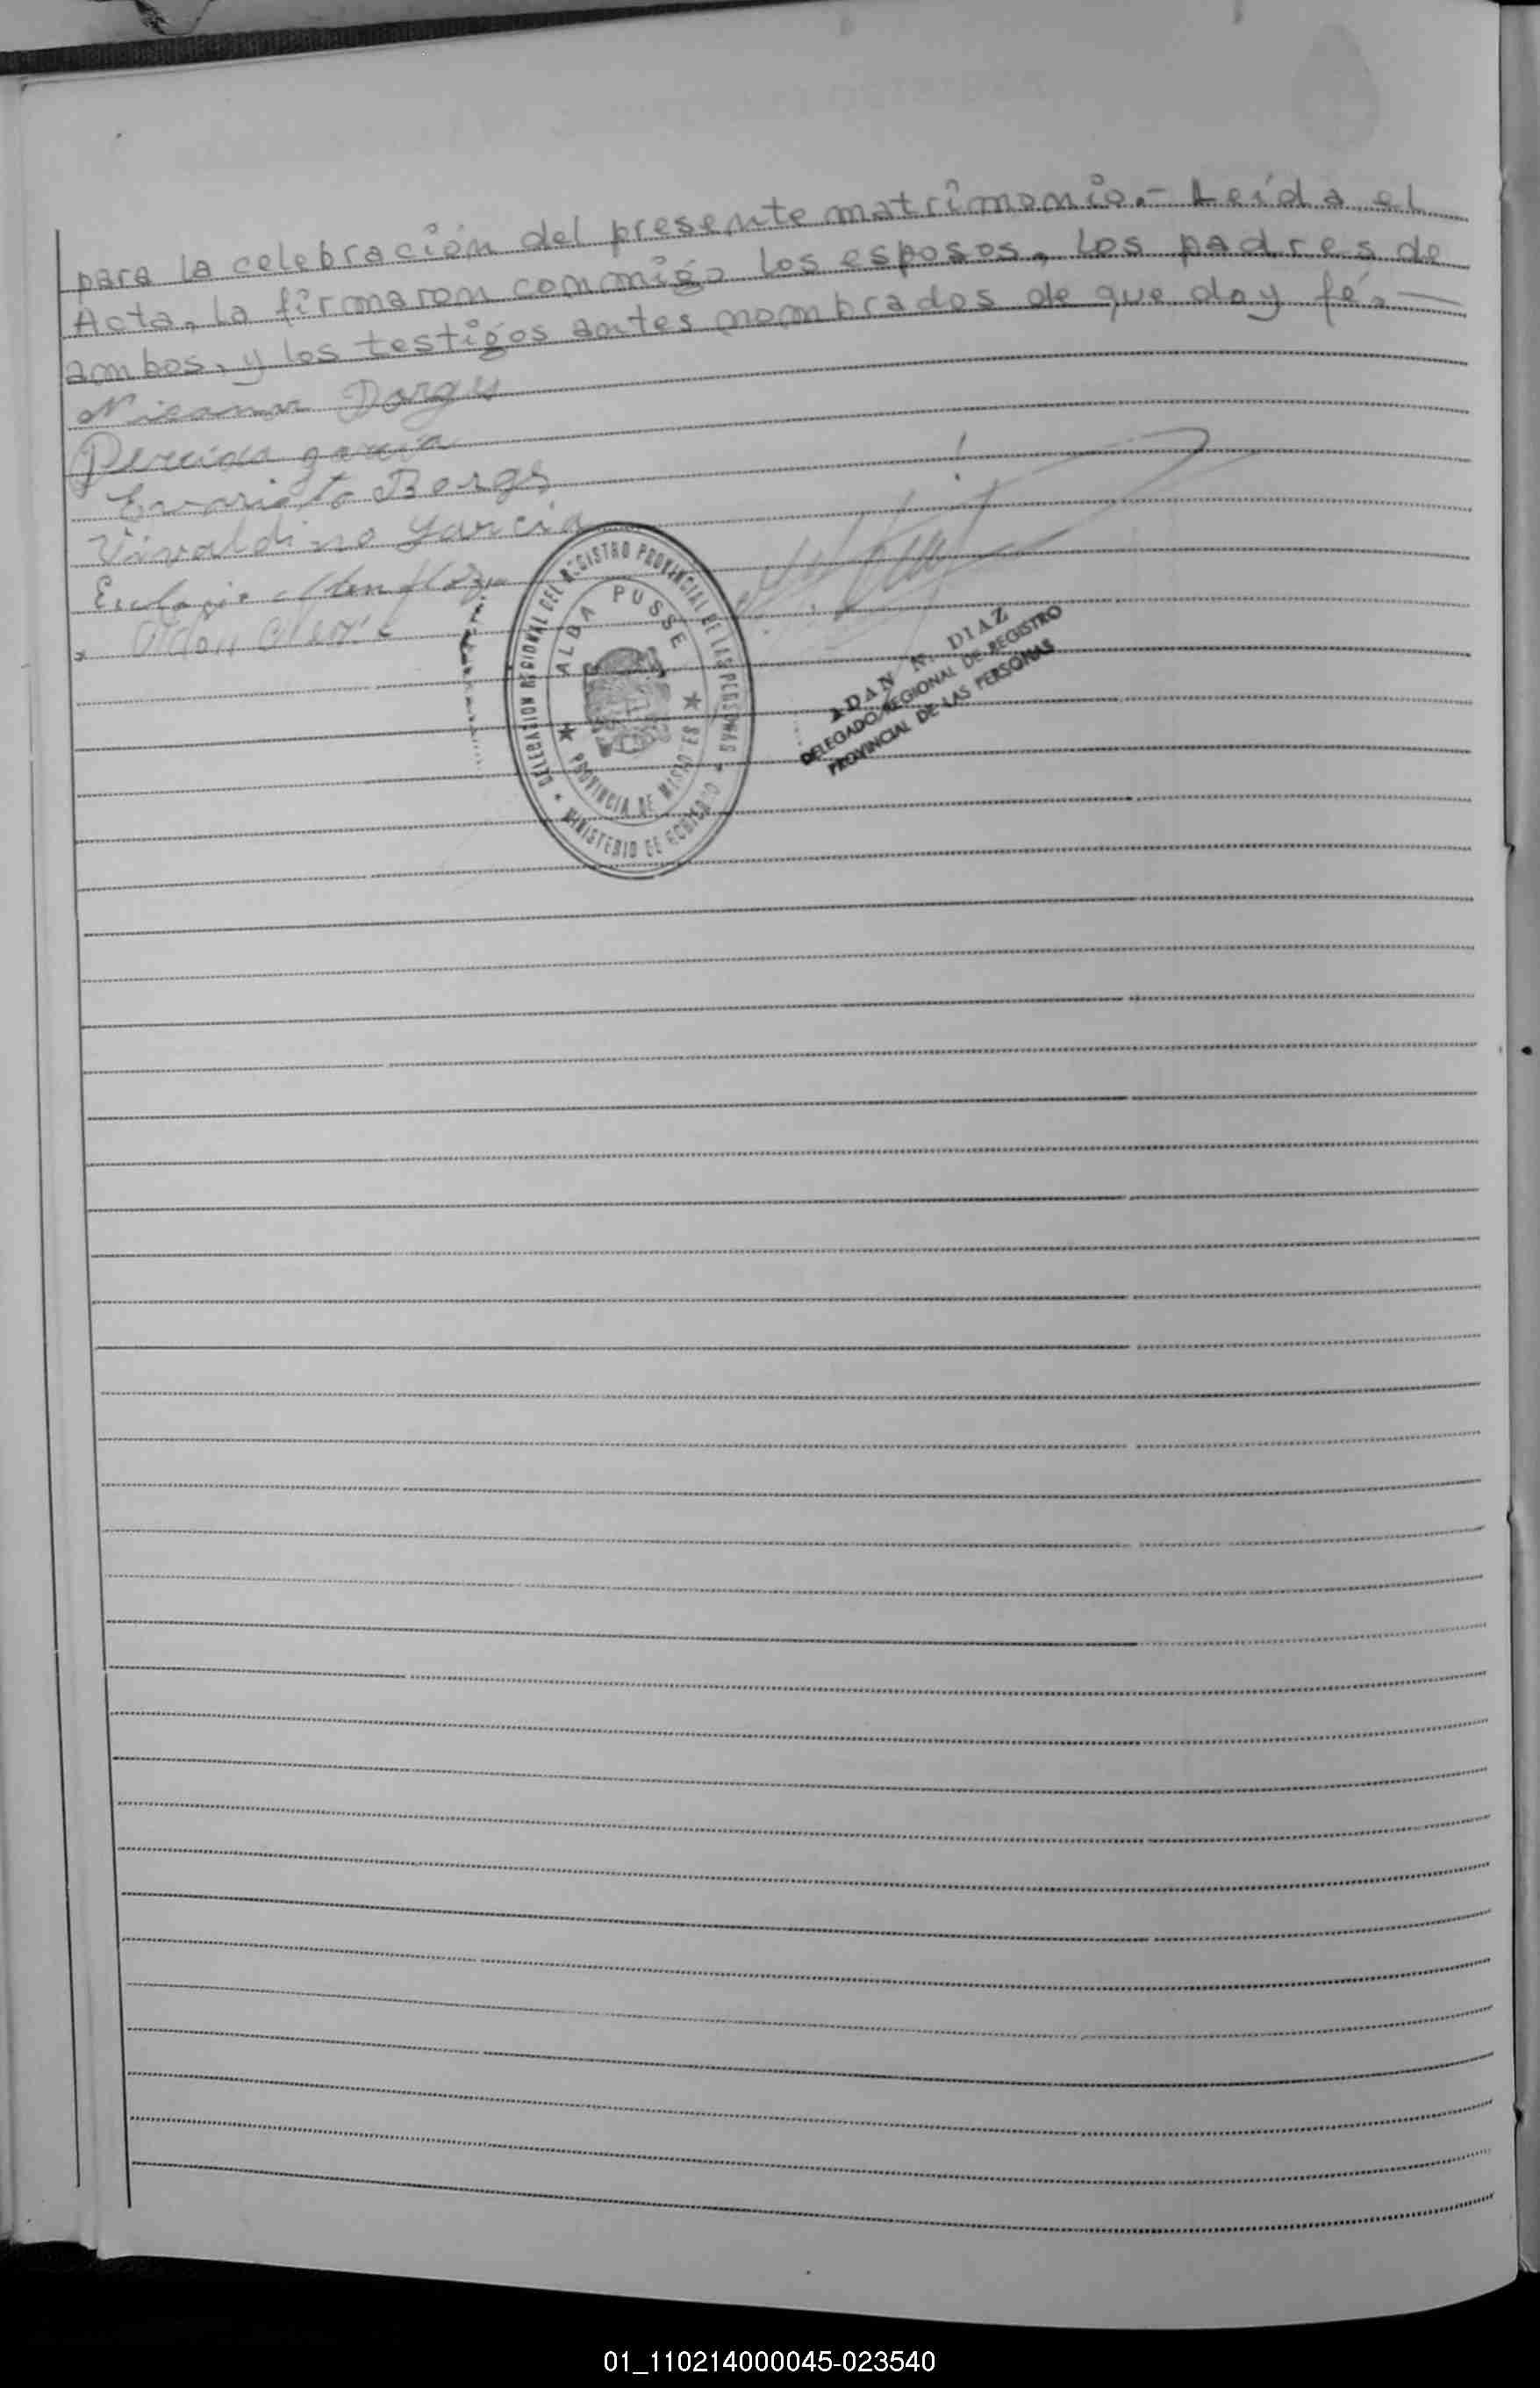 para la celebración del presente matrimonio.- Leída el
Acta, la firmaron conmigo los esposos, los padres de
ambos, y los testigos antes nombrados de que doy fé.-
Nicanor
garcia
Evaristo Borges
Vivaldino Garcia
Eulogio
DELEGACION REGIONAL DEL REGISTRO PROVINCIAL DE LAS PERSONAS
ALBA PUSSE
PROVINCIA DE MISIONES
MINISTERIO DE GOBIERNO
ADAN N. DIAZ
DELEGADO REGIONAL DE REGISTRO
PROVINCIAL DE LAS PERSONAS
01_110214000045-023540